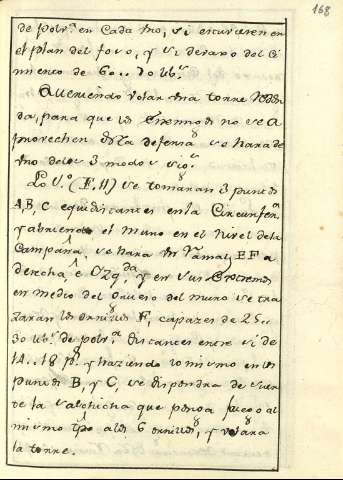 168
de polv.ª en cada uno, si estuviesen en
el plan del foso, y si devaxo del Ci
miento de 60.. 70 lib.ˢ
Queriendo volar una torre redon
da, para que los Enemigos no se a
provechen desta defensa se hara de
uno delos 3 modos sig.ˢ
Lo 1.º (F. 11) se tomaran 3 puntos
A, B, C equidistantes en la Circunferª
y abriendo el muro en el nivel dela
Campaña, se hara un Ramal EF a
derecha, è Izq.da, y en sus Extremos
en medio del grueso del muro se tra
zaran los ornillos F, capazes de 25..
30 lib.ˢ de polv.ª distantes entre si de
14.. 18 p.ˢ y haziendo lo mismo en los
puntos B, y C, se dispondra de suer
te la salchicha que penda fuego al
mismo tpo alos 6 ornillos, y volara
la torre.